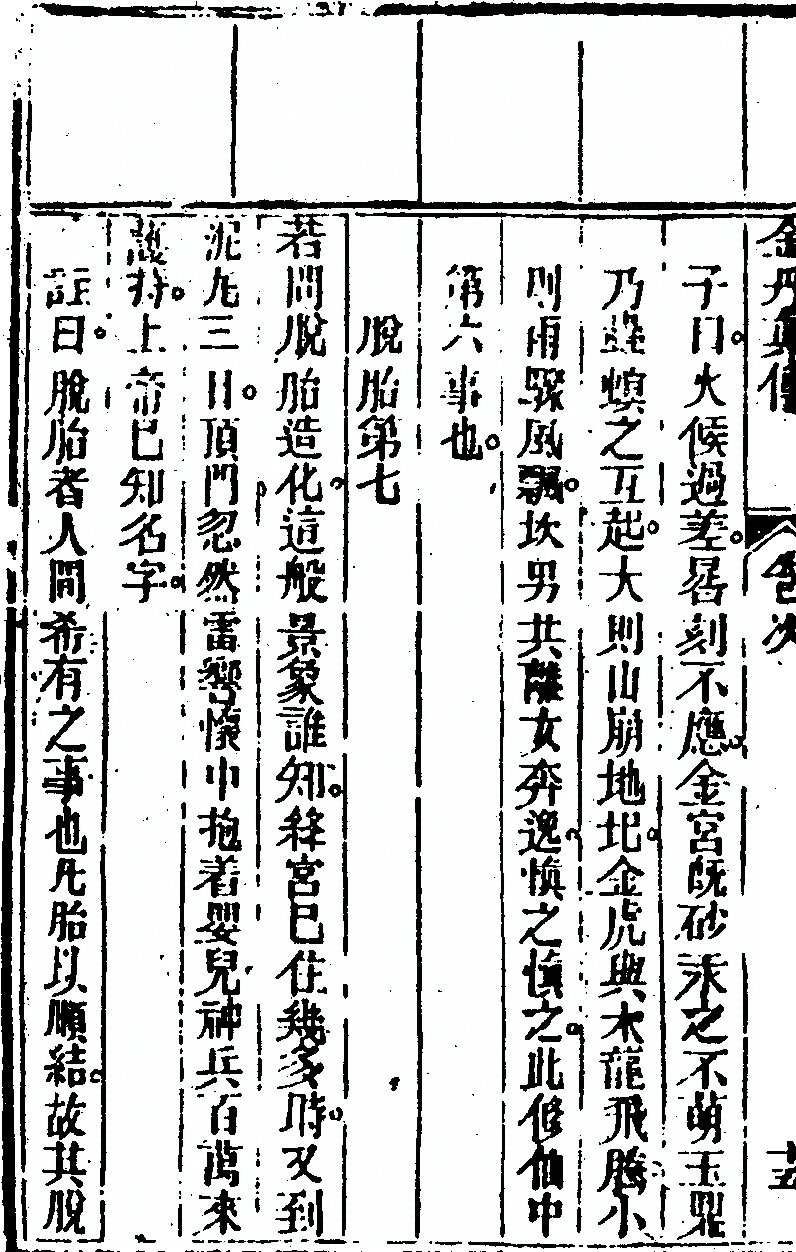 金丹真傳
卷次
十五
子曰火候過差晷刻不應金宮旣砂汞之不萌玉鼎
乃螽螟之互起大則山崩地圮金虎與木龍飛騰小
則雨驟風飄坎男共離女奔逸慎之慎之此修仙中
第六事也
脫胎第七
若問脫胎造化這般景象誰知絳宮巳住幾多時又到
泥丸三日頂門忽然雷響懷中抱着嬰兒神兵百萬來
護持上帝巳知名字
註曰脫胎者人間希有之事也凡胎以順結故其脫